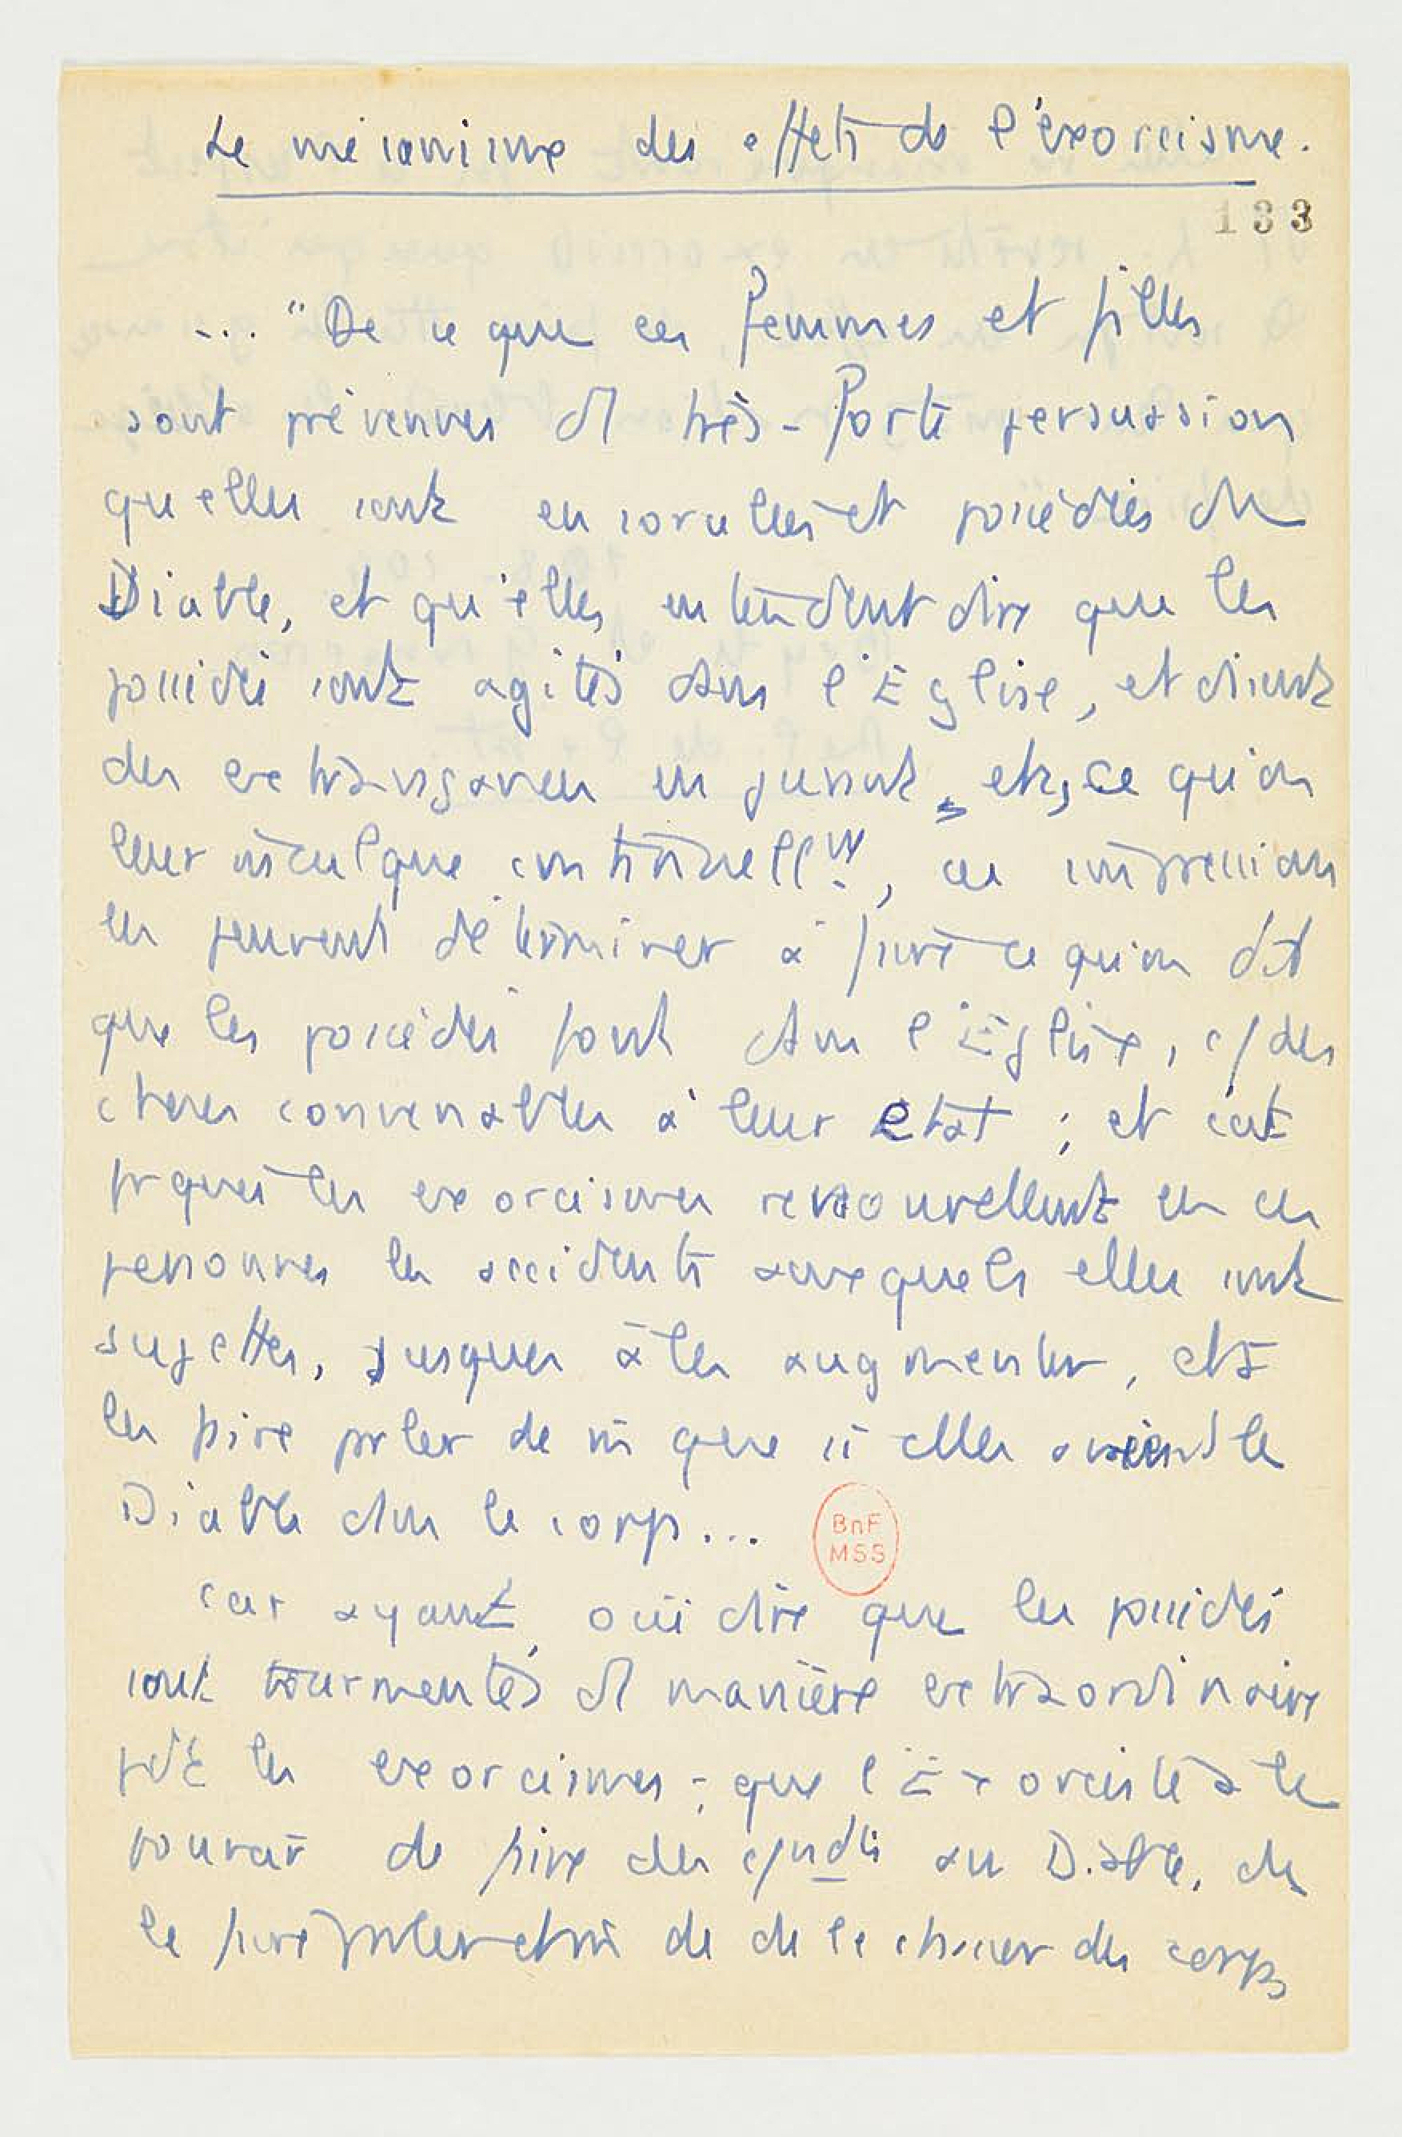 Le mécanisme des effets de l'exorcisme.
133
... "De ce que ces femmes et filles
sont prévenues d très-forte persuasion
qu'elles sont ensorcelées et possédées du
Diable, et qu'elles entendent dire que les
possédés sont agités dans l'Église, et disent
des extravagances en jurant, etc, ce qu'on
leur inculque continuellnt, ces impressions
les peuvent déterminer à faire ce qu'on dit
que les possédés font dans l'Église, c/ des
choses convenables à leur etat ; et c'est
pr quoi les exorcismes renouvellent en ces
personnes les accidents auxquels elles sont
sujettes, jusques à les augmenter, et à
les faire parler de m que si elles avaient le
Diable dans le corps...
car ayant oui dire que les possédés
sont tourmentés d manière extraordinaire
pdt les exorcismes ; que l'Exorciste a le
pouvoir de faire des au Diable, de
le faire parler et de de le chasser des corps
BnF
MSS